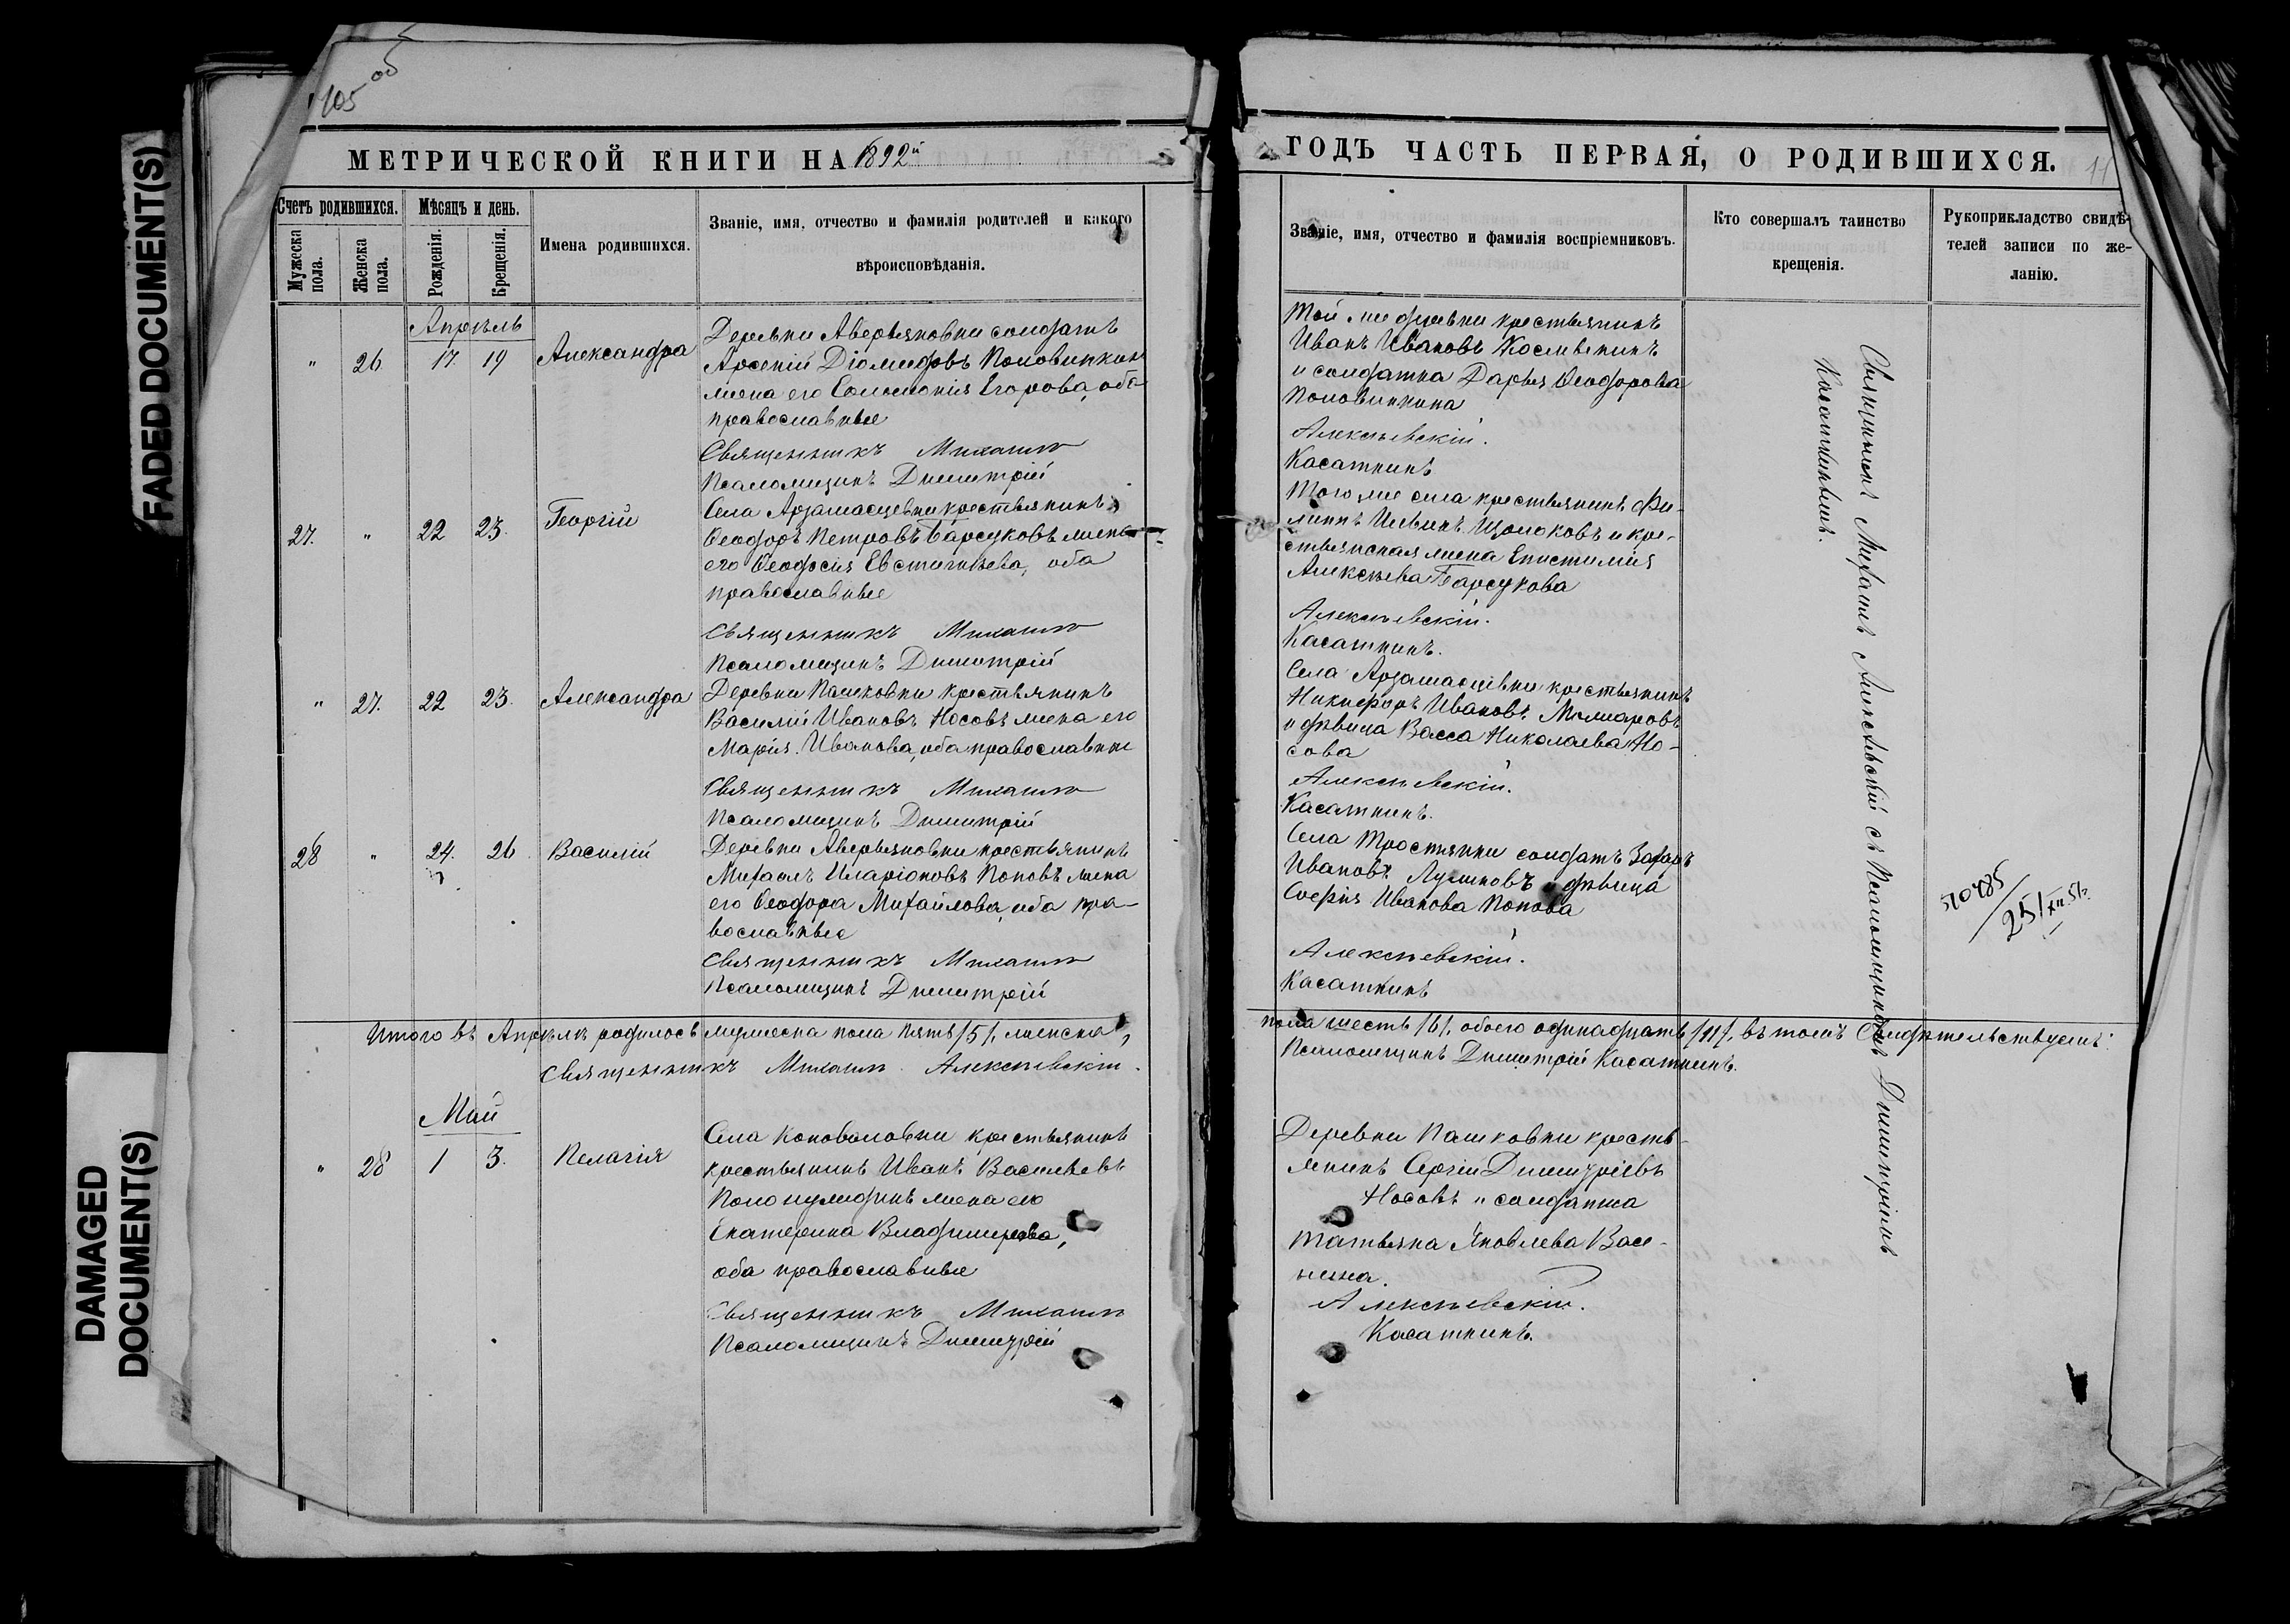 105 об
МЕТРИЧЕСКОЙ КНИГИ НА 1892й
Счетъ родившихся.
Мѣсяцъ и день.
Мужеска пола.
Женска пола.
Рожденія.
Крещенія.
Имена родившихся.
Званіе, имя, отчество и фамилія родителей и какого
вѣроисповѣданія.
Апрѣль
" 26 17 19 Александра
Деревни Аверьяновки солдатъ
Арсеній Діомидовъ Половинкинъ
жена его Соломонія Егорова, оба
православные
Священникъ Михаилъ
Псаломщикъ Димитрій
27. " 22 23. Георгій
Села Арзамасцевки крестьянинъ
Ѳеодоръ Петровъ Барсуковъ жена
его Ѳеодосія Евстигнѣева, оба
православные
Священникъ Михаилъ
Псаломщикъ Димитрій
" 27. 22 23. Александра
Деревни Пашковки крестьянинъ
Василій Ивановъ Носовъ жена его
Марія Иванова, оба православные
Священникъ Михаилъ
Псаломщикъ Димитрій
28 " 24. 26 Василій
Деревни Аверьяновки крестьянинъ
Михаилъ Иларіоновъ Поповъ жена
его Ѳеодора Михайлова, оба пра-
вославные
Священникъ Михаилъ
Псаломщикъ Димитрій
Итого въ Апрѣлѣ родилось мужеска пола пять /5/, женска
Священникъ Михаилъ Алексѣевскій.
Май
" 28 1 3. Пелагія
Села Коноваловки крестьянинъ
крестьянинъ Иванъ Васильевъ
жена его
Екатерина Владимірова,
оба православные
Священникъ Михаилъ
Псаломщикъ Димитрій
ГОДЪ ЧАСТЬ ПЕРВАЯ, О РОДИВШИХСЯ.
Званіе, имя, отчество и фамилія воспріемниковъ.
Кто совершалъ таинство
крещенія.
Рукоприкладство свидѣ-
телей записи по же-
ланію.
Той же деревни крестьянинъ
Иванъ Ивановъ
и солдатка Дарья Ѳеодорова
Половинкина
Алексѣевскій.
Касаткинъ
Того же села крестьянинъ Фи-
липпъ Ильинъ Щолоковъ и кре-
стьянская жена Епистимія
Алексѣева Барсукова
Алексѣевскій.
Касаткинъ.
Села Арзамасцевки крестьянинъ
Никифоръ Ивановъ
и дѣвица Васса Николаева Но-
сова
Алексѣевскій.
Касаткинъ.
Села Тростянки солдатъ Захаръ
Ивановъ Лушковъ и дѣвица
Софія Иванова Попова
Алексѣевскій.
Касаткинъ
пола шесть /6/, обоего одинадцать /11/, въ томъ свидѣтельствуемъ:
Псаломщикъ Димитрій Касаткинъ.
Деревни Пашковки кресть-
янинъ Сергій Димитріевъ
Носовъ и солдатка
Татьяна Яковлева
Алексѣевскій.
Касаткинъ.
Священникъ Михаилъ Алексѣевскій съ Псаломщикомъ Димитріемъ
Касаткинымъ.
510485
25/XII 51.
FADED DOCUMENT(S)
DAMAGED
DOCUMENT(S)